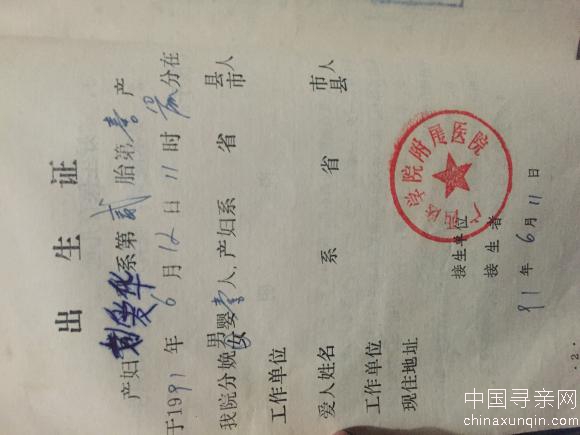 出生证
产妇爱华系第贰胎第壹产
于1991年6月12日11时分在
我院分娩男女婴壹人,产妇系 省 县市人
工作单位
爱人姓名 系 省 市县人
工作单位
现住地址
学院附属医院
接生单位
接生者
91年6月11日
·2·
中国寻亲网
chinaxunqin.com